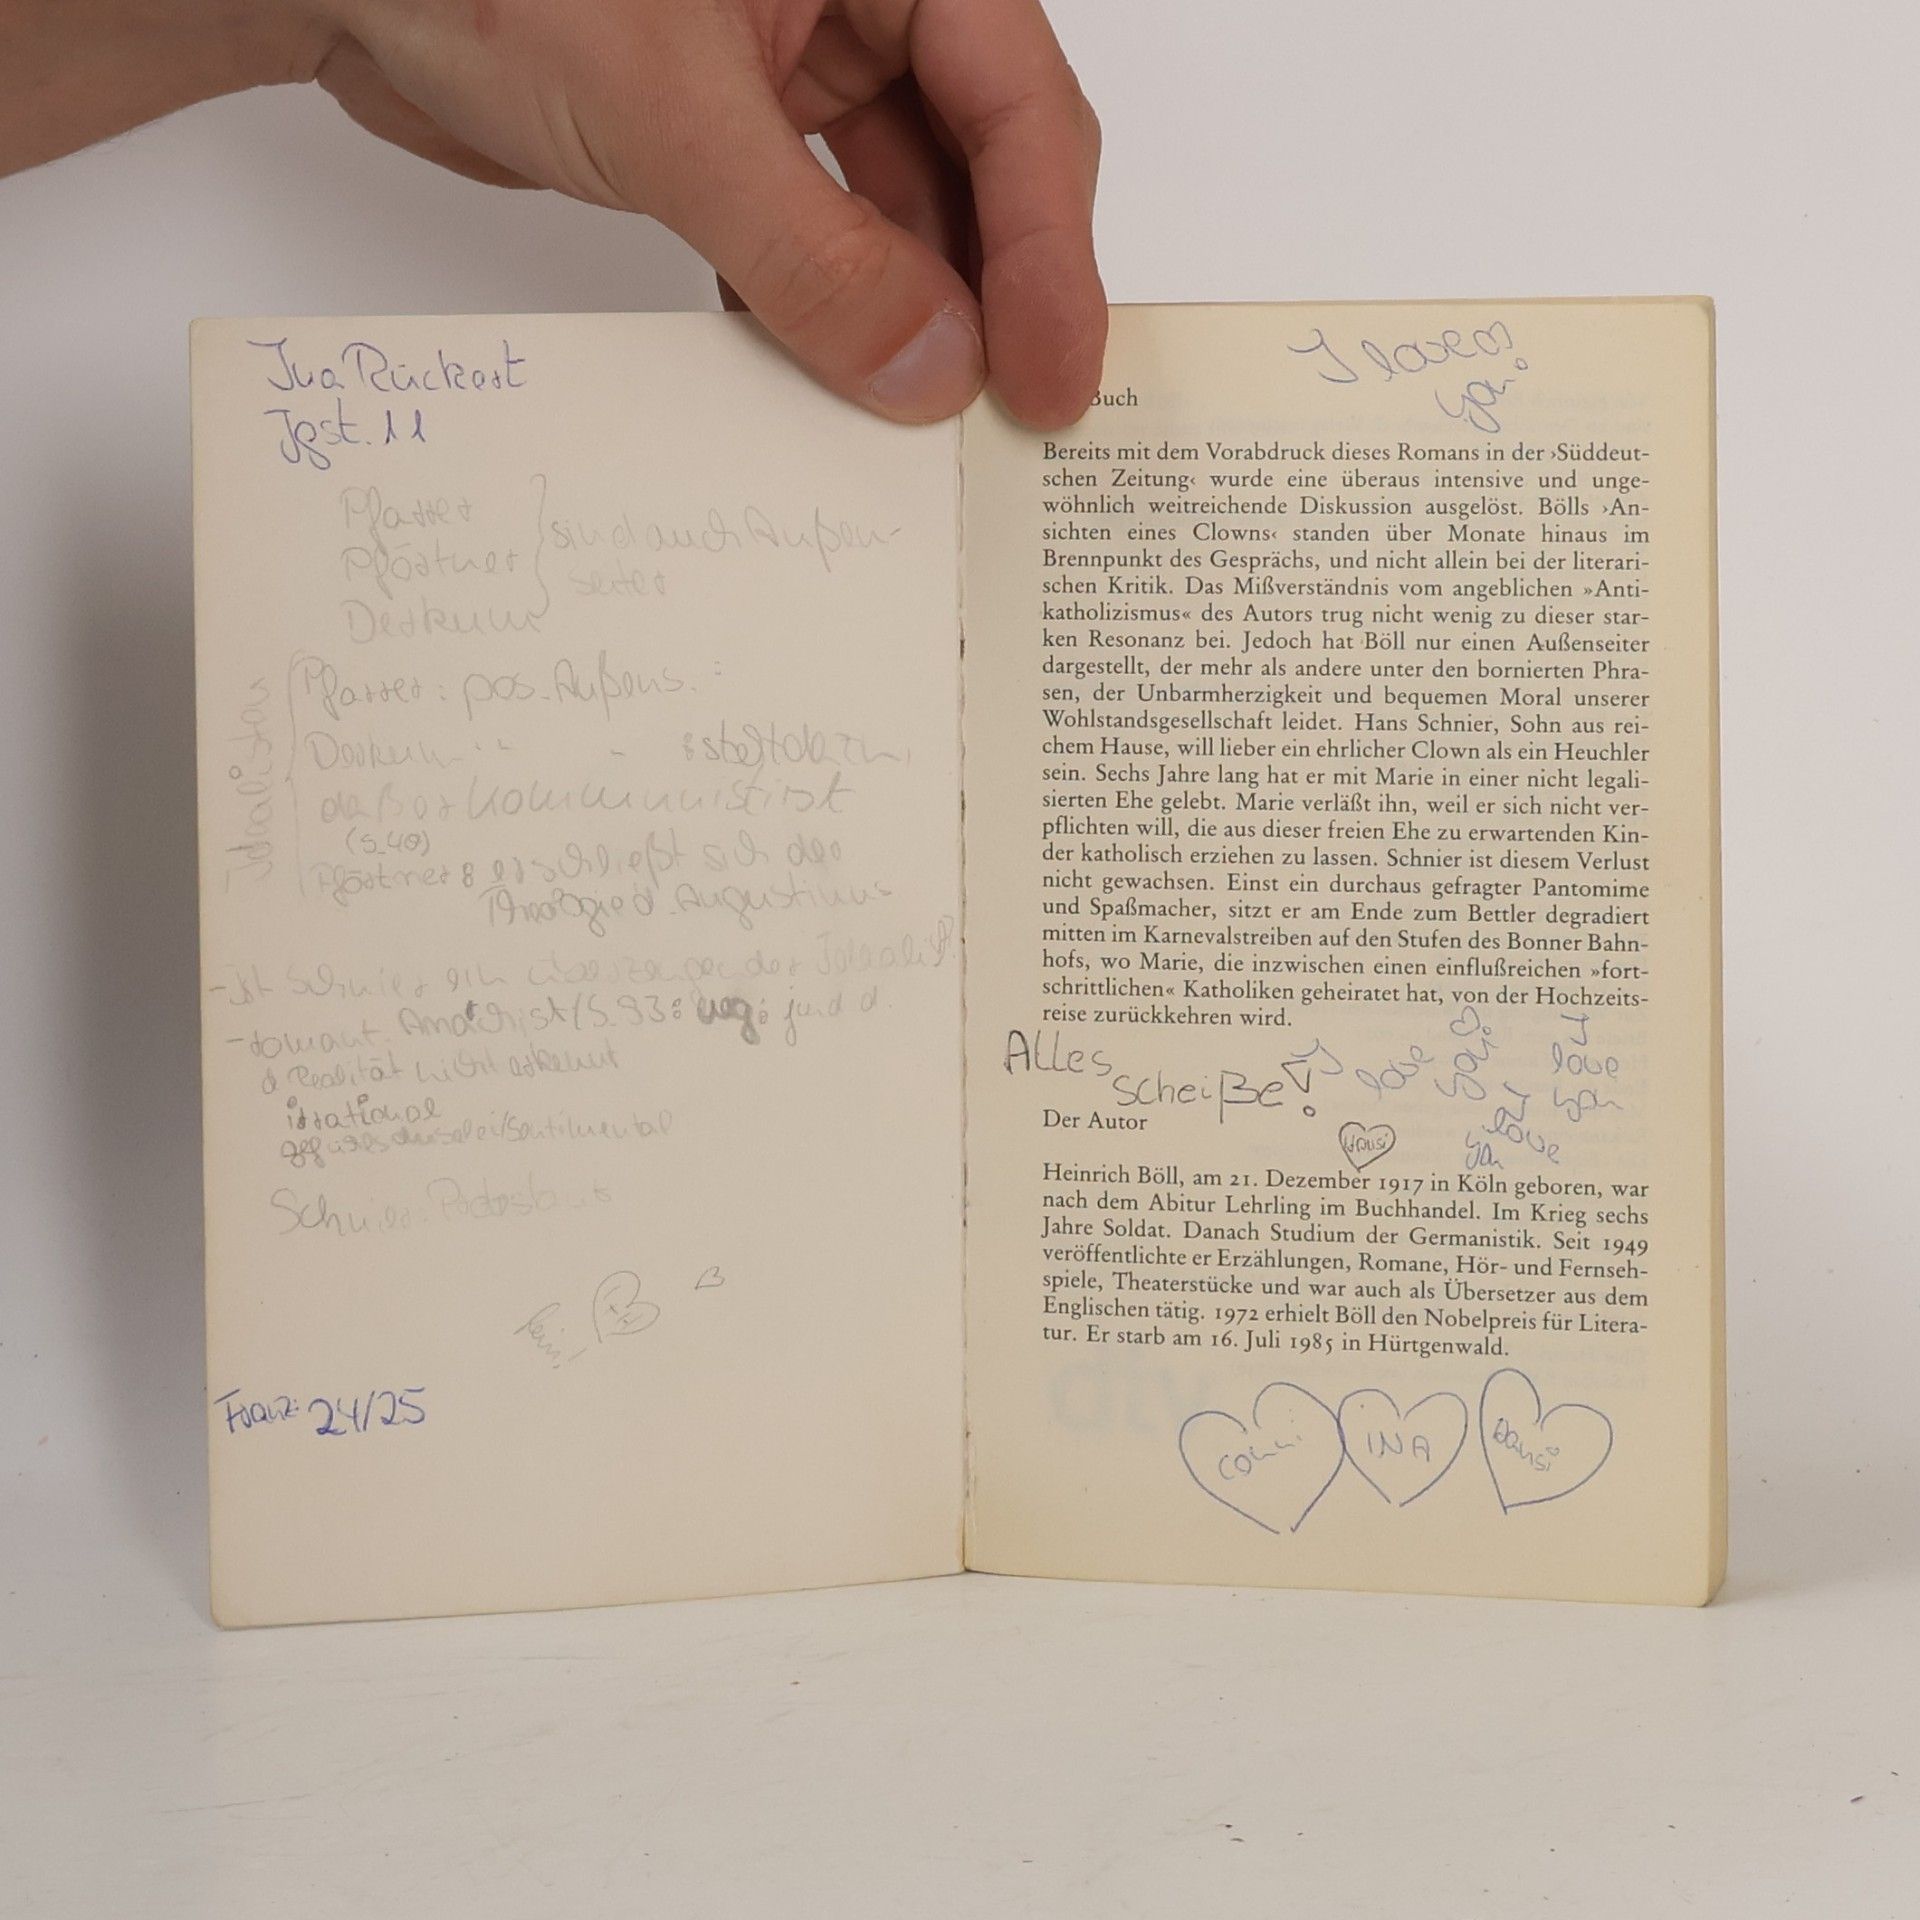 Ina Rückert
Jgst. 11
Pfarrer
Pförtner
Derkum
sind auch Außen-
seiter
Idealisten
Pfarrer: pos. Außens. :
Derkum " " : steht dazu,
daß er Kommunist ist
(S. 40)
Pförtner: er schließt sich der
Theologie d. Augustinus
- Ist Schnier ein überzeugender Idealist?
- romant. Anarchist (S. 93: weg: jund d.
d Realität nicht erkennt
irrational
sentimental
Schnier:
Nein!
Franz: 24/25
I love
you!
Buch
Bereits mit dem Vorabdruck dieses Romans in der ›Süddeut-
schen Zeitung‹ wurde eine überaus intensive und unge-
wöhnlich weitreichende Diskussion ausgelöst. Bölls ›An-
sichten eines Clowns‹ standen über Monate hinaus im
Brennpunkt des Gesprächs, und nicht allein bei der literari-
schen Kritik. Das Mißverständnis vom angeblichen »Anti-
katholizismus« des Autors trug nicht wenig zu dieser star-
ken Resonanz bei. Jedoch hat Böll nur einen Außenseiter
dargestellt, der mehr als andere unter den bornierten Phra-
sen, der Unbarmherzigkeit und bequemen Moral unserer
Wohlstandsgesellschaft leidet. Hans Schnier, Sohn aus rei-
chem Hause, will lieber ein ehrlicher Clown als ein Heuchler
sein. Sechs Jahre lang hat er mit Marie in einer nicht legali-
sierten Ehe gelebt. Marie verläßt ihn, weil er sich nicht ver-
pflichten will, die aus dieser freien Ehe zu erwartenden Kin-
der katholisch erziehen zu lassen. Schnier ist diesem Verlust
nicht gewachsen. Einst ein durchaus gefragter Pantomime
und Spaßmacher, sitzt er am Ende zum Bettler degradiert
mitten im Karnevalstreiben auf den Stufen des Bonner Bahn-
hofs, wo Marie, die inzwischen einen einflußreichen »fort-
schrittlichen« Katholiken geheiratet hat, von der Hochzeits-
reise zurückkehren wird.
Alles
scheiße!
I love you!
I
love
you
I love
you
Hansi
Der Autor
Heinrich Böll, am 21. Dezember 1917 in Köln geboren, war
nach dem Abitur Lehrling im Buchhandel. Im Krieg sechs
Jahre Soldat. Danach Studium der Germanistik. Seit 1949
veröffentlichte er Erzählungen, Romane, Hör- und Fernseh-
spiele, Theaterstücke und war auch als Übersetzer aus dem
Englischen tätig. 1972 erhielt Böll den Nobelpreis für Litera-
tur. Er starb am 16. Juli 1985 in Hürtgenwald.
Conni
INA
Hansi